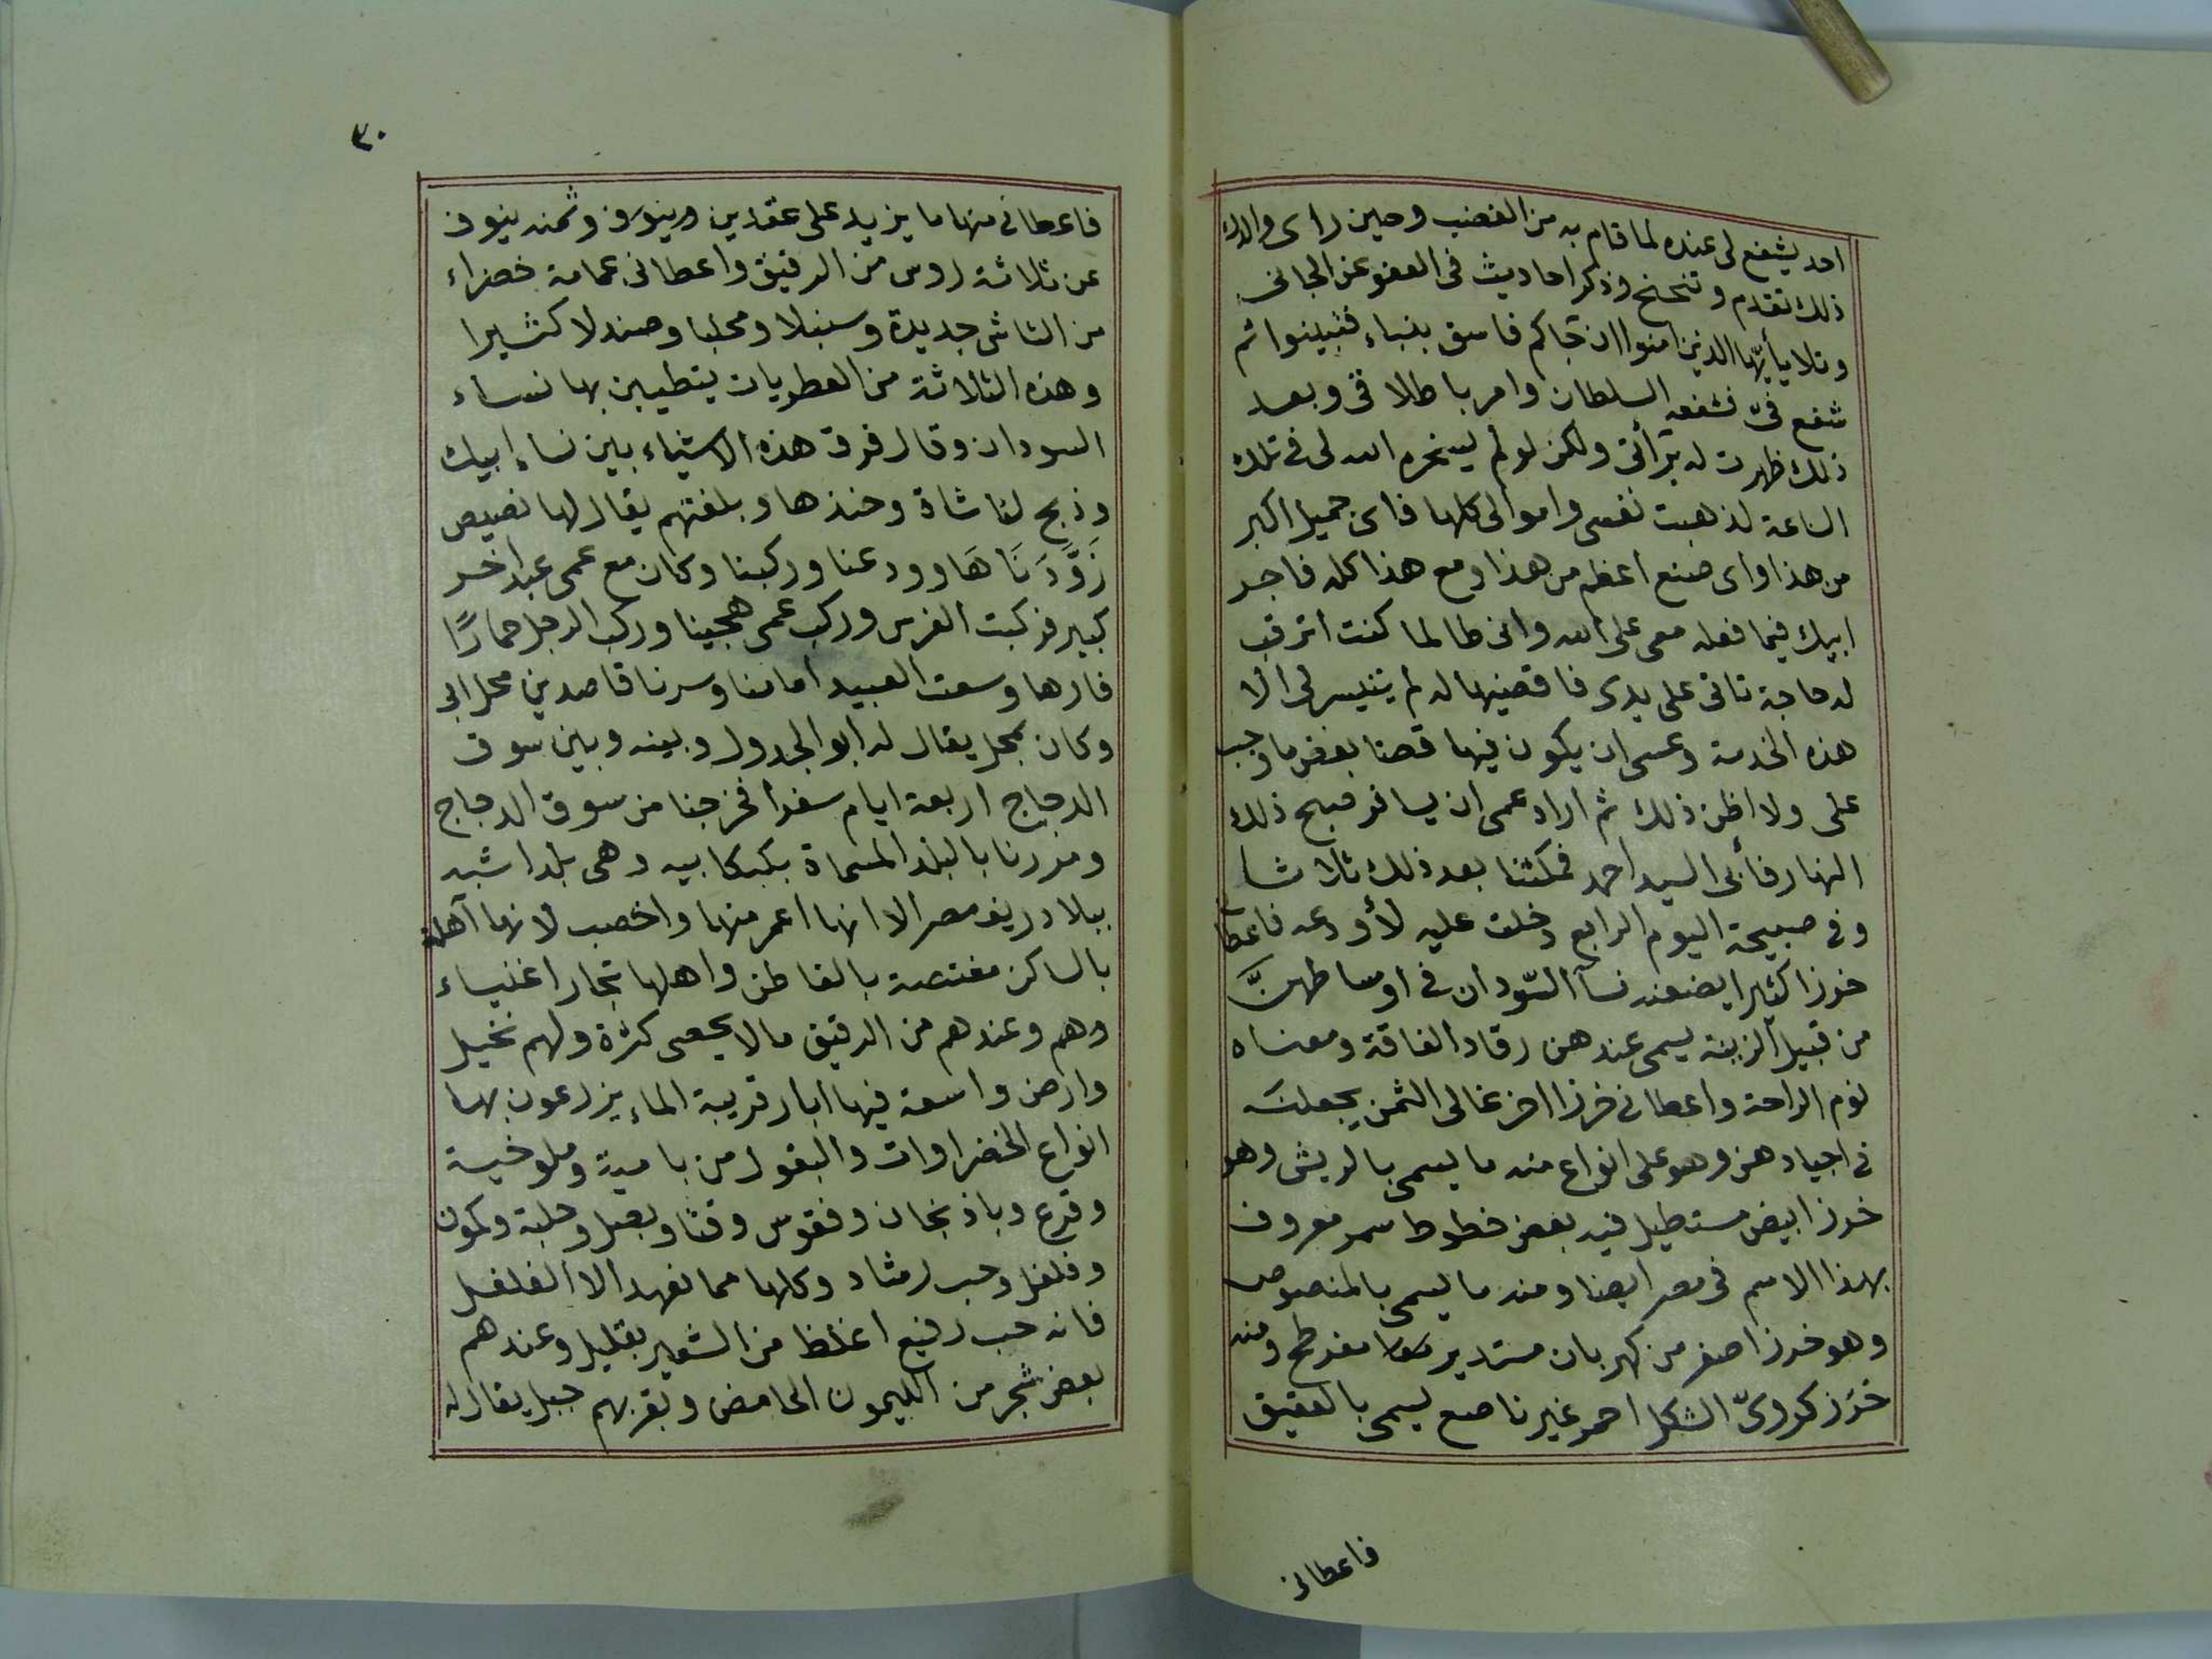 احد يشفع لى عنده لما قام به من الغضب وحين راى والدك
ذلك تقدم وتنحنح وذكر احاديث فى العفو عن الجانى
وتلا يأيّها الذين امنوا ان جاكم فاسق بنباء فتبينوا ثم
شفع فىّ فشفعه السلطان وامر باطلاقى وبعد
ذلك ظهرت له برأتى ولكن لو لم يسخره الله لى فى تلك
الساعة لذهبت نفسى واموالى كلها فاى جميل اكبر
من هذا واى صنع اعظم من هذا ومع هذا كله فاجر
ابيك فيما فعله معى على الله وانى طالما كنت اترقب
له حاجة تاتى على يدى فاقضيها له لم يتيسر لى الا
هذه الخدمة وعسى ان يكون فيها قضا بعض ما وجب
على ولا اظن ذلك ثم اراد عمى ان يسافر صبح ذلك
النهار فأبى السيد احمد فمكثنا بعد ذلك ثلاثا
وفى صبيحة اليوم الرابع دخلت عليه لأودعه فاعطا
خرزا كثيرا يضعنه نسآ السّودان فى اوساطهنّ
من قبيل الزينة يسمى عندهن رقاد الفاقة ومعناه
نوم الراحة واعطانى خرزا اخر غالى الثمن يجعلنه
فى اجيادهن وهو على انواع منه ما يسمى بالريش وهو
خرز ابيض مستطيل فيه بعض خطوط سمر معروف
بهذا الاسم فى مصر ايضا ومنه ما يسمى بالمنصوص
وهو خرز اصفر من كهربان مستدير مفرطح ومنه
خرز كروىّ الشكل احمر غير ناصع يسمى بالعقيق
فاعطانى
٣٠
فاعطانى منها ما يزيد على عقدين وينوف وثمنه ينوف
عن ثلاثة روس من الرقيق واعطانى عمامة خضراء
من الشاش جديدة وسنبلا ومحلبا وصندلا كثيرا
وهذه الثلاثة من العطريات يتطيبن بها نساء
السودان وقال فرق هذه الاشياء بين نساء ابيك
وذبح لنا شاة وحنذها وبلغتهم يقال لها نصيص
زَوَّدَنَا هَا وودعنا وركبنا وكان مع عمى عبد اخر
كبير فركبت الفرس وركب عمى هجينا وركب الرجل حمارًا
فارها وسعت العبيد امامنا وسرنا قاصدين محل ابى
وكان بمحل يقال له ابو الجدول وبينه وبين سوق
الدجاج اربعة ايام سفرا فخرجنا من سوق الدجاج
ومررنا بالبلد المسماة بكبكابيه وهى بلد اشبه
ببلاد ريف مصر الا انها اعمر منها واخصب لانها آهلة
بالساكن مغتصة بالقاطن واهلها تجار اغنياء
وهم وعندهم من الرقيق مالا يحصى كثرة ولهم نخيل
وارض واسعة فيها ابار قريبة الماء يزرعون بها
انواع الخضراوات والبقول من بامية وملوخية
وقرع وباذنجان وفقوس وقثا وبصل وحلبة وكمون
وفلفل وحب رشاد وكلها مما نعهد الا الفلفل
فانه حب رفيع اغلظ من الشعير بقليل وعندهم
بعض شجر من الليمون الحامض وبقربهم جبل يقال له